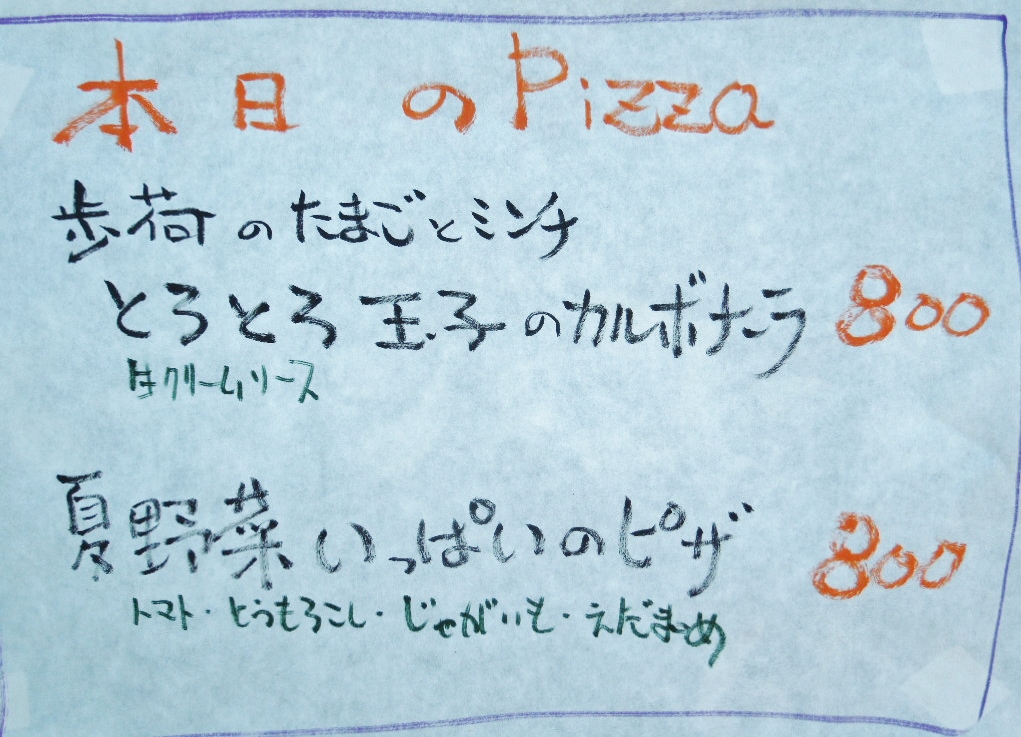 本日のPizza
歩荷のたまごとミンチ
とろとろ玉子のカルボナーラ 800
生クリームソース
夏野菜いっぱいのピザ 800
トマト・とうもろこし・じゃがいも・えだまめ